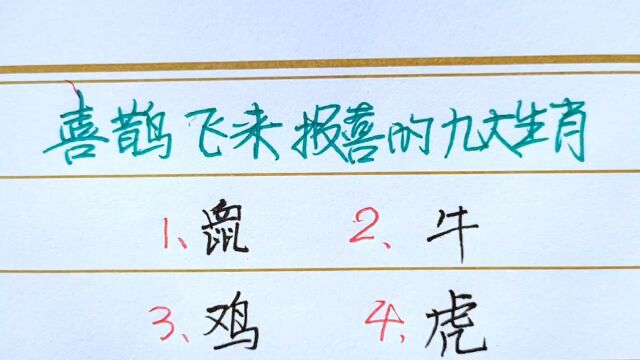 喜鹊飞来报喜的九大生肖
1、鼠 2、牛
3、鸡 4、虎